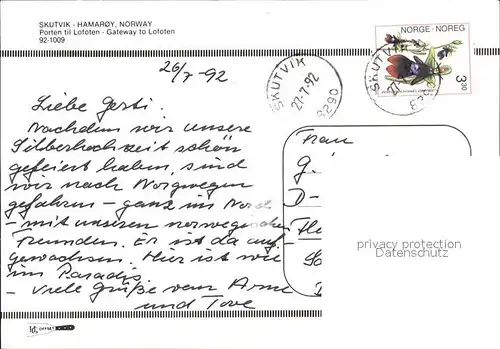 SKUTVIK - HAMARØY, NORWAY
Porten til Lofoten - Gateway to Lofoten
92-1009
NORGE · NOREG
3 30
SKUTVIK
27-7-92
8290
SKUTVIK
27-
26/7-92
Liebe Gerti.
Nachdem wir unsere
Silberhochzeit schön
gefeiert haben, sind
wir nach Norgwegen
gefahren - ganz im Nord
- mit unseren norwegischen
Freunden. Er ist da auf-
gewachsen. Hier ist wie
im Paradis.
- Viele Grüße von Arne
und Tove
Frau
G.
D-
privacy protection
Datenschutz
OFFSET